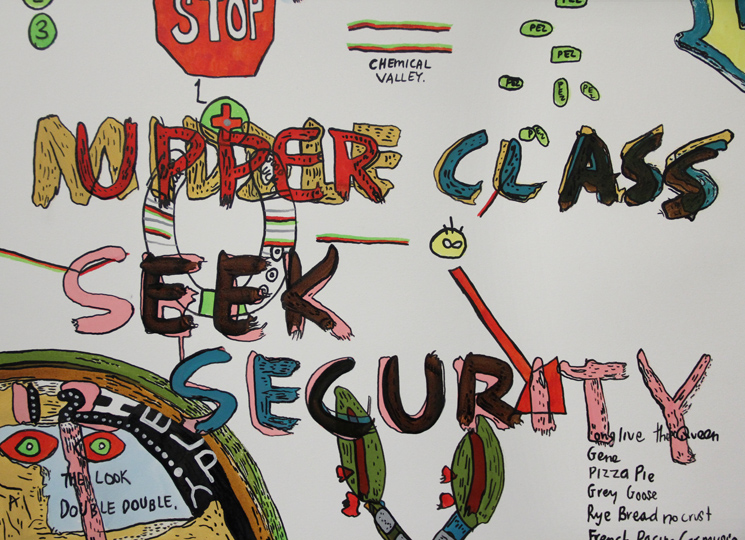 2
3
STOP
1
CHEMICAL
VALLEY.
PEZ
PEZ
PEZ
PEZ
PEZ
PEZ
MIDDLE
UPPER CLASS
SEEK
SECURITY
THE LOOK
DOUBLE DOUBLE.
Long live the Queen
Gene
Pizza Pie
Grey Goose
Rye Bread no crust
French